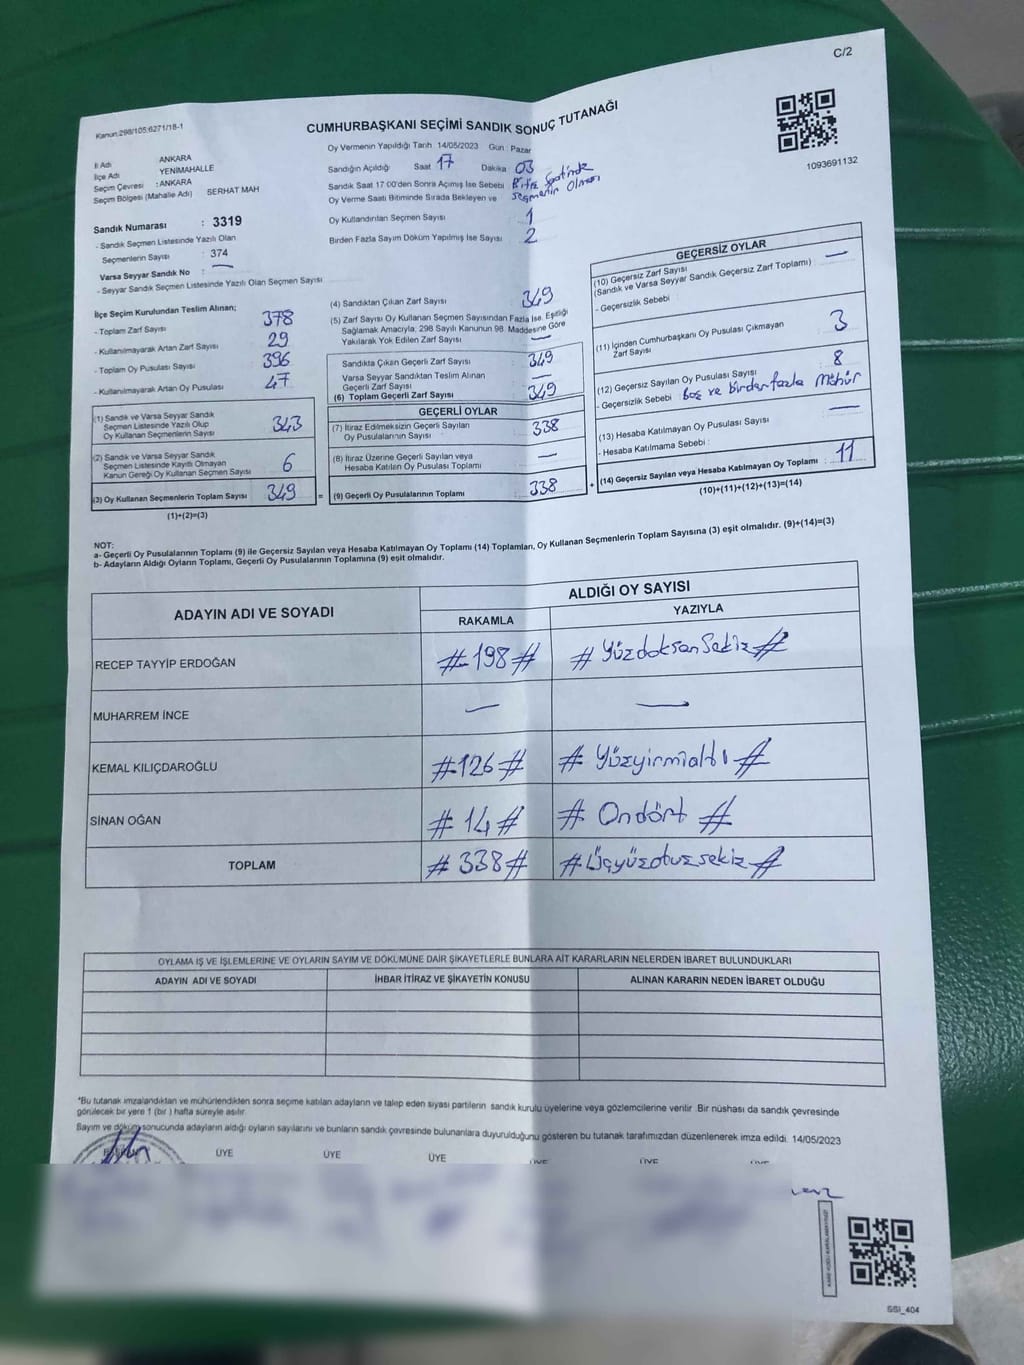 C/2
Kanun:298/105;6271/18-1
CUMHURBAŞKANI SEÇİMİ SANDIK SONUÇ TUTANAĞI
1093691132
İl Adı ANKARA
İlçe Adı YENİMAHALLE
Seçim Çevresi : ANKARA
Seçim Bölgesi (Mahalle Adı) SERHAT MAH
Sandık Numarası : 3319
- Sandık Seçmen Listesinde Yazılı Olan
Seçmenlerin Sayısı : 374
Varsa Seyyar Sandık No : —
- Seyyar Sandık Seçmen Listesinde Yazılı Olan Seçmen Sayısı
Oy Vermenin Yapıldığı Tarih 14/05/2023 Gün : Pazar
Sandığın Açıldığı Saat 17 Dakika 03
Sandık Saat 17:00'den Sonra Açımış İse Sebebi Bitiş Saatinde
Seçmenin Olması
Oy Verme Saati Bitiminde Sırada Bekleyen ve
Oy Kullandırılan Seçmen Sayısı 1
Birden Fazla Sayım Döküm Yapılmış İse Sayısı 2
İlçe Seçim Kurulundan Teslim Alınan;
- Toplam Zarf Sayısı 378
- Kullanılmayarak Artan Zarf Sayısı 29
- Toplam Oy Pusulası Sayısı 396
- Kullanılmayarak Artan Oy Pusulası 47
(1) Sandık ve Varsa Seyyar Sandık
Seçmen Listesinde Yazılı Olup
Oy Kullanan Seçmenlerin Sayısı 343
(2) Sandık ve Varsa Seyyar Sandık
Seçmen Listesinde Kayıtlı Olmayan
Kanun Gereği Oy Kullanan Seçmen Sayısı 6
(3) Oy Kullanan Seçmenlerin Toplam Sayısı 349
(1)+(2)=(3)
(4) Sandıktan Çıkan Zarf Sayısı 349
(5) Zarf Sayısı Oy Kullanan Seçmen Sayısından Fazla İse, Eşitliği
Sağlamak Amacıyla; 298 Sayılı Kanunun 98. Maddesine Göre
Yakılarak Yok Edilen Zarf Sayısı —
Sandıkta Çıkan Geçerli Zarf Sayısı 349
Varsa Seyyar Sandıktan Teslim Alınan
Geçerli Zarf Sayısı —
(6) Toplam Geçerli Zarf Sayısı 349
GEÇERLİ OYLAR
(7) İtiraz Edilmeksizin Geçerli Sayılan
Oy Pusulalarının Sayısı 338
(8) İtiraz Üzerine Geçerli Sayılan veya
Hesaba Katılan Oy Pusulası Toplamı —
= (9) Geçerli Oy Pusulalarının Toplamı 338
GEÇERSİZ OYLAR
(10) Geçersiz Zarf Sayısı
(Sandık ve Varsa Seyyar Sandık Geçersiz Zarf Toplamı) —
- Geçersizlik Sebebi :
(11) İçinden Cumhurbaşkanı Oy Pusulası Çıkmayan
Zarf Sayısı 3
(12) Geçersiz Sayılan Oy Pusulası Sayısı 8
- Geçersizlik Sebebi Boş ve Birden fazla Mühür
(13) Hesaba Katılmayan Oy Pusulası Sayısı —
- Hesaba Katılmama Sebebi :
+ (14) Geçersiz Sayılan veya Hesaba Katılmayan Oy Toplamı : 11
(10)+(11)+(12)+(13)=(14)
NOT:
a- Geçerli Oy Pusulalarının Toplamı (9) ile Geçersiz Sayılan veya Hesaba Katılmayan Oy Toplamı (14) Toplamları, Oy Kullanan Seçmenlerin Toplam Sayısına (3) eşit olmalıdır. (9)+(14)=(3)
b- Adayların Aldığı Oyların Toplamı, Geçerli Oy Pusulalarının Toplamına (9) eşit olmalıdır.
ADAYIN ADI VE SOYADI
ALDIĞI OY SAYISI
RAKAMLA YAZIYLA
RECEP TAYYİP ERDOĞAN #198# #Yüzdoksansekiz#
MUHARREM İNCE — —
KEMAL KILIÇDAROĞLU #126# #Yüzyirmialtı#
SİNAN OĞAN #14# #Ondört#
TOPLAM #338# #Üçyüzotuzsekiz#
OYLAMA İŞ VE İŞLEMLERİNE VE OYLARIN SAYIM VE DÖKÜMÜNE DAİR ŞİKAYETLERLE BUNLARA AİT KARARLARIN NELERDEN İBARET BULUNDUKLARI
ADAYIN ADI VE SOYADI İHBAR İTİRAZ VE ŞİKAYETİN KONUSU ALINAN KARARIN NEDEN İBARET OLDUĞU
*Bu tutanak imzalandıktan ve mühürlendikten sonra seçime katılan adayların ve talep eden siyasi partilerin sandık kurulu üyelerine veya gözlemcilerine verilir. Bir nüshası da sandık çevresinde
görülecek bir yere 1 (bir ) hafta süreyle asılır.
Sayım ve döküm sonucunda adayların aldığı oyların sayılarını ve bunların sandık çevresinde bulunanlara duyurulduğunu gösteren bu tutanak tarafımızdan düzenlenerek imza edildi. 14/05/2023
BAŞKAN ÜYE ÜYE ÜYE ÜYE ÜYE ÜYE
SSI_404